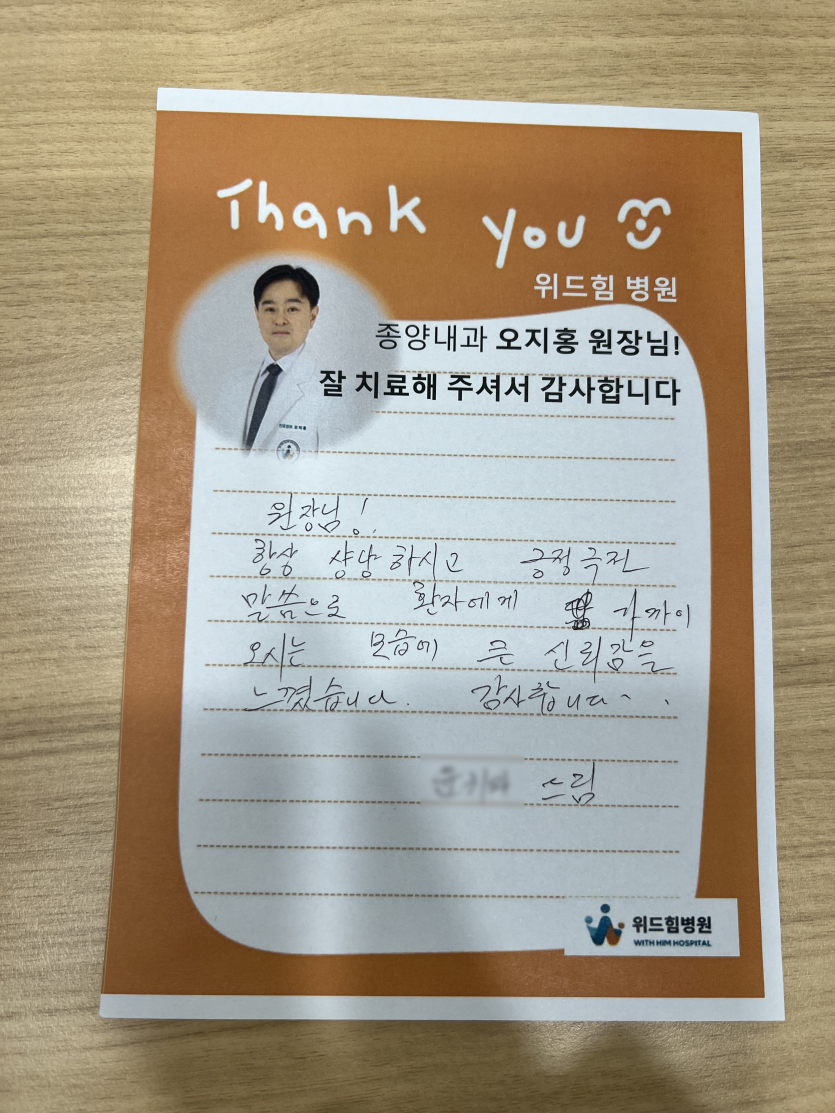 Thank you
위드힘 병원
종양내과 오지홍 원장님!
잘 치료해 주셔서 감사합니다
원장님!
항상 상냥하시고 긍정극전
말씀으로 환자에게 가까이
오시는 모습에 큰 신뢰감을
느꼈습니다. 감사합니다~.
드림
위드힘병원
WITH HIM HOSPITAL